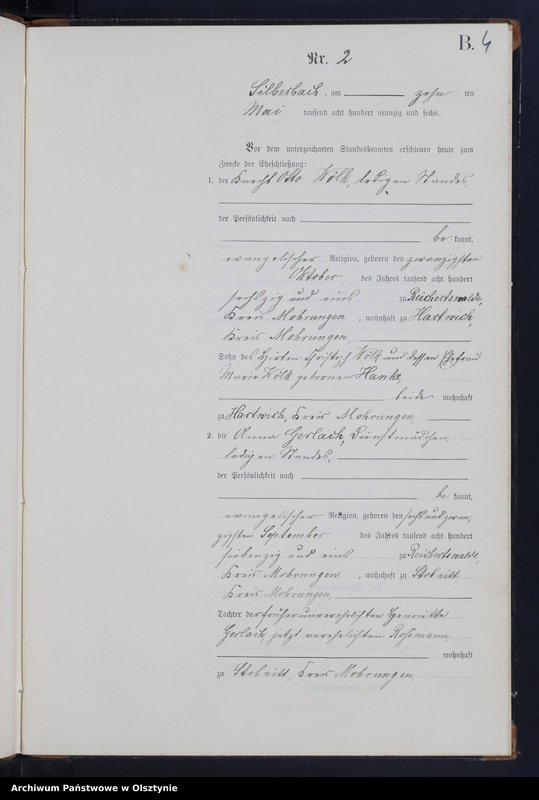 B. 4
Nr. 2
Silberbach, am zehn ten
Mai tausend acht hundert neunzig und sechs.
Vor dem unterzeichneten Standesbeamten erschienen heute zum
Zwecke der Eheschließung:
1. der Knecht Otto Wölk, ledigen Standes,
der Persönlichkeit nach
be kannt,
evangelischer Religion, geboren den zwanzigsten
Oktober des Jahres tausend acht hundert
sechszig und eins zu Reichertswalde,
Kreis Mohrungen, wohnhaft zu Hartwich,
Kreis Mohrungen,
Sohn des Hirten Christoph Wölk und dessen Ehefrau
Maria Wölk geborenen Hanke,
beide wohnhaft
zu Hartwich, Kreis Mohrungen,
2. die Anna Gerlach, Dienstmädchen,
ledigen Standes,
der Persönlichkeit nach
be kannt,
evangelischer Religion, geboren den sechs und zwan-
zigsten September des Jahres tausend acht hundert
siebenzig und eins zu Reichertswalde,
Kreis Mohrungen, wohnhaft zu Stobnitt
Kreis Mohrungen,
Tochter der früher unverehelichten Henriette
Gerlach, jetzt verehelichten Rossmann
wohnhaft
zu Stobnitt, Kreis Mohrungen,
Archiwum Państwowe w Olsztynie